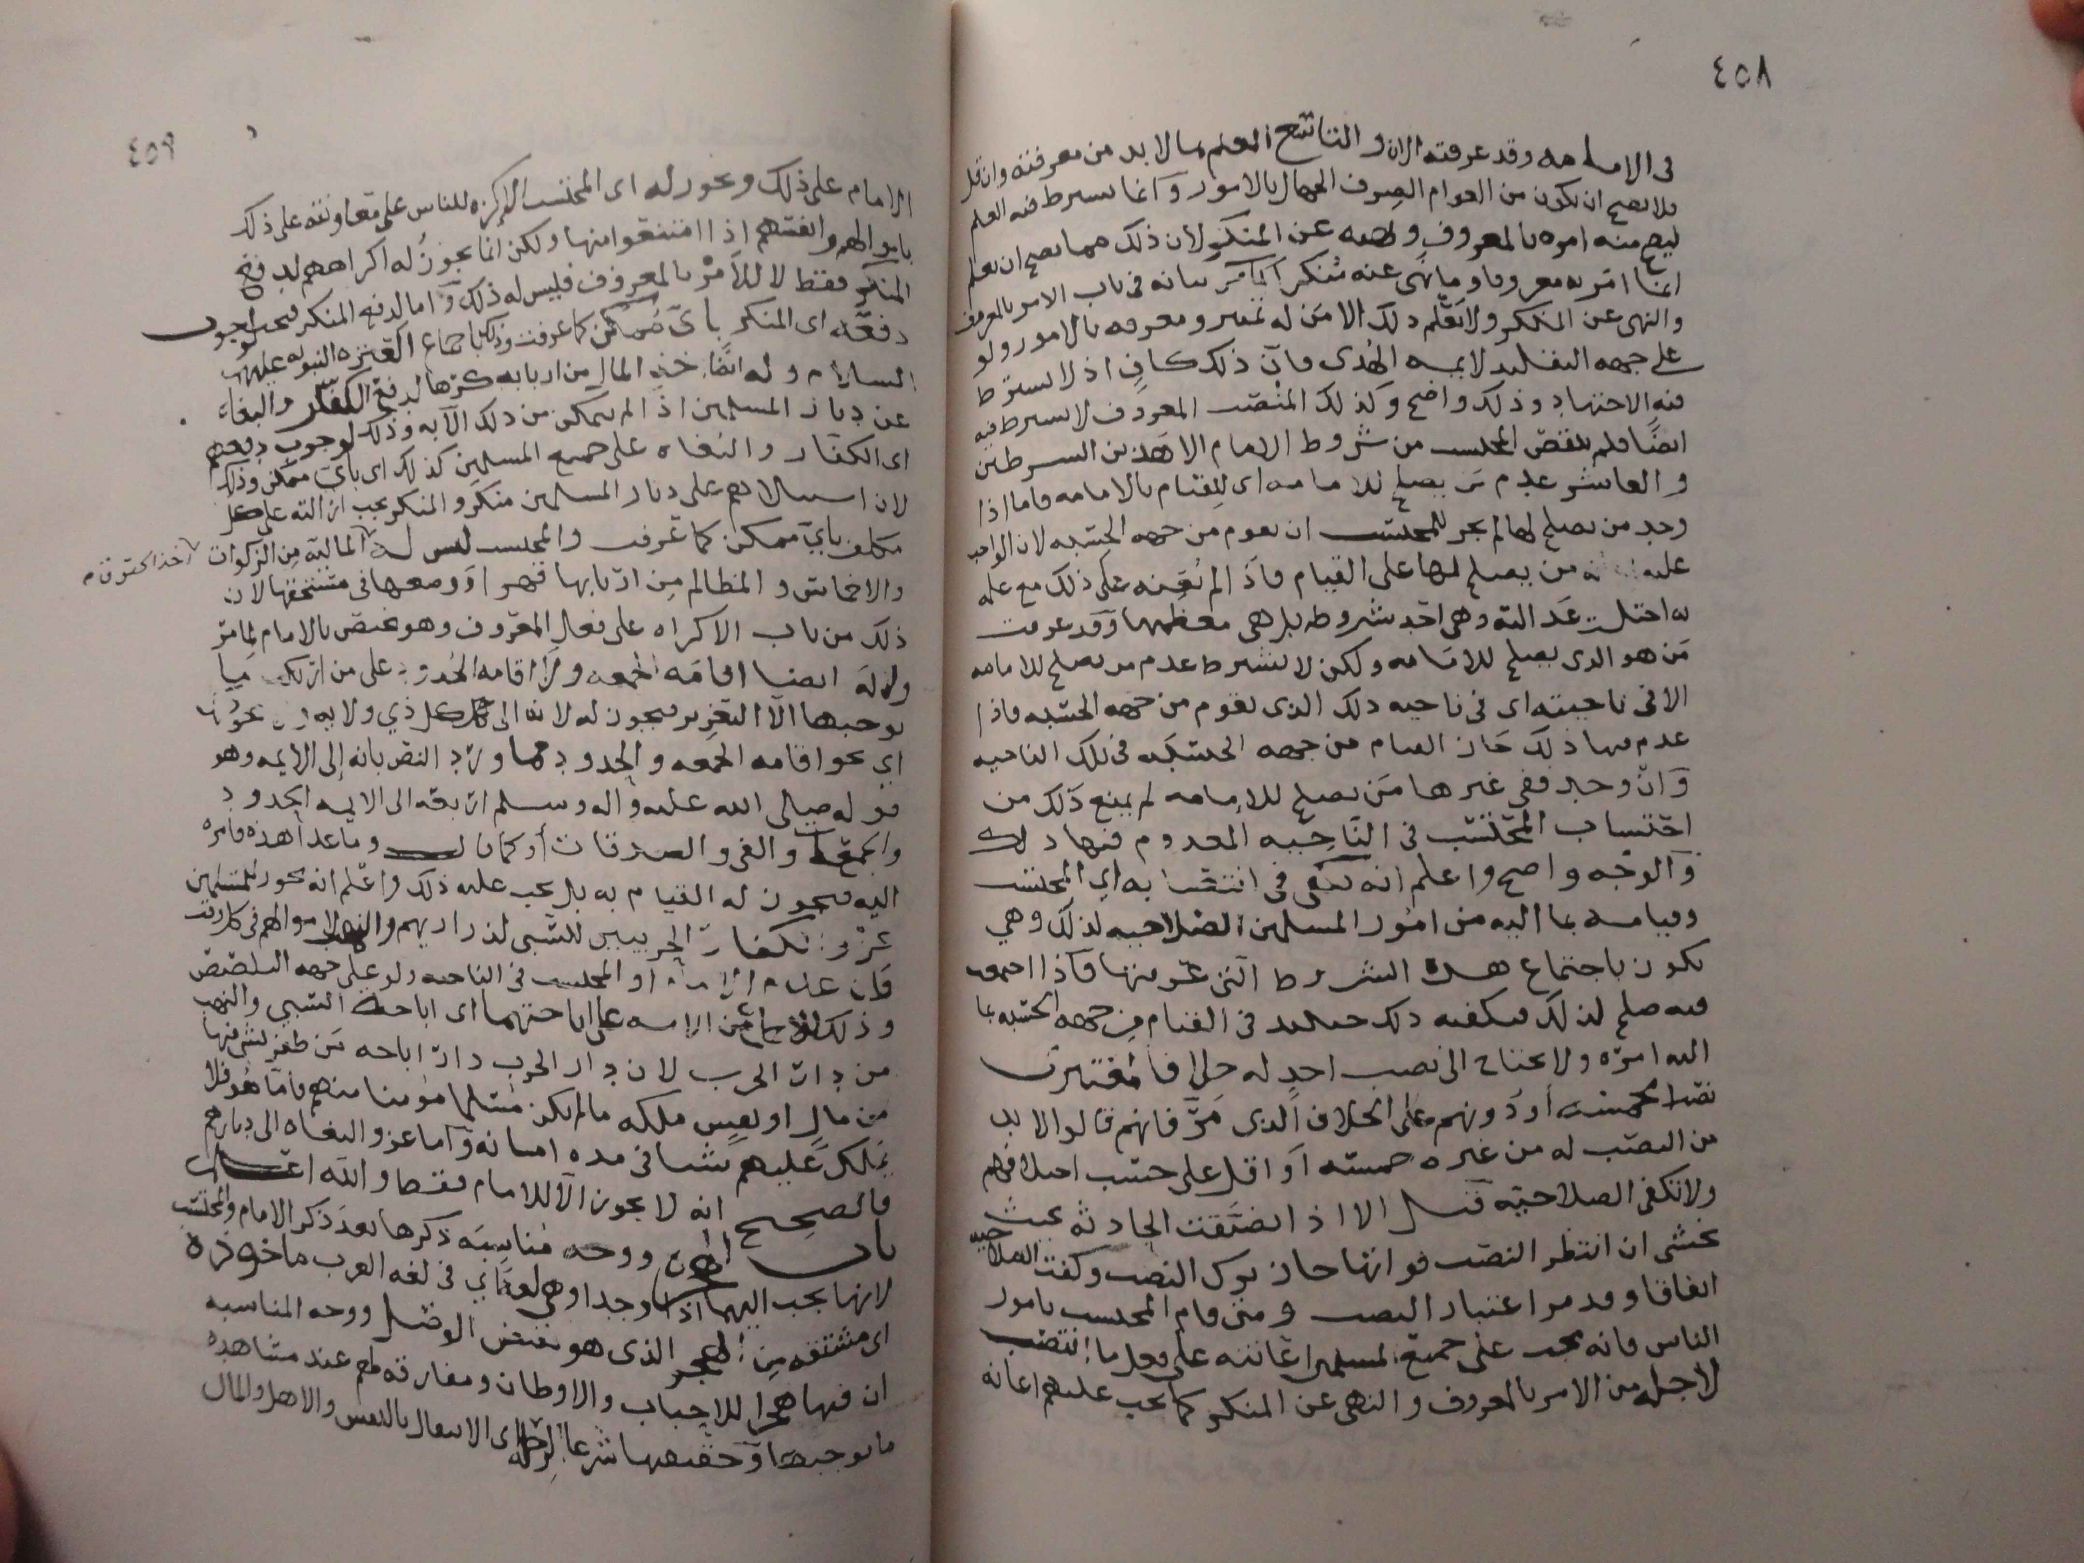 ٤٥٨
في الامامه وقد عرفته الان و التاسع العلم بما لابد من معرفته وان قل
فلا يصح ان يكون من العوام الصرف الجهال بالامور وانما يشرط فيه العلم
ليصح منه امره بالمعروف ونهيه عن المنكر لان ذلك مما يصح ان يعلم
انما امر به معروفا وما نهى عنه منكر كما مر بيانه في باب الامر بالمعروف
والنهي عن المنكر ولا يعلم ذلك الا من له تمييز ومعرفه بالامور ولو
على جهه التقليد لايمه الهدى فان ذلك كافٍ اذ لا يشترط
فيه الاجتهاد وذلك واضح وكذلك المنصب المعروف لا يشرط فيه
ايضًا فلم ينقص المحتسب من شروط الامام الا هذين الشرطين
و العاشر عدم من يصلح للامامه اى للقيام بالامامه فاما اذا
وجد من يصلح لها لم يجز للمحتسب ان يقوم من جهه الحسبه لان الواجب
عليه من يصلح لها على القيام فاذ الم يُعِنه على ذلك مع علمه
به اختلت عدالته وهي احد شروطه بل هي معظمها وقد عرفت
من هو الذي يصلح للامامه ولكن لا يشرط عدم من يصلح للامامه
الا في ناحيته اى في ناحيه ذلك الذي يقوم من جهه الحسبه فاذا
عدم فيها ذلك جاز القيام من جهه الحسبه في تلك الناحيه
وان وجد ففي غيرها من يصلح للامامه لم يمنع ذلك من
احتساب المحتسب في الناحيه المعدوم فيها ذلك
والوجه واضح واعلم انه يكفي في انتصابه اي المحتسب
وقيامه بما اليه من امور المسلمين الصلاحيه لذلك وهي
تكون باجتماع هذه الشروط التي عرفتها فاذا اجتمعت
فيه صلح لذلك فيكفيه ذلك حينئذ في القيام من جهه الحسبه بما
اليه امره ولا يحتاج الى نصب احد له خلافا لمعتبرى
نصب خمسه او دونهم على الخلاف الذي مر فانهم قالوا لابد
من النصب له من غيره خمسه او اقل على حسب اختلافهم
ولا تكفي الصلاحيه قيل الا اذا تضيقت الحادثه بحيث
يخشى ان انتظر النصب فواتها جاز ترك النصب وكفت الصلاحيه
اتفاقا وقد مر اعتبار النصب ومتى قام المحتسب بامور
الناس فانه يجب على جميع المسلمين اعانته على فعل ما انتصب
لاجله من الامر بالمعروف والنهى عن المنكر كما يجب عليهم اعانه
٤٥٩
الامام على ذلك ويجوز له اى المحتسب الاكراه للناس على معاونته على ذلك
باموالهم وانفسهم اذا امتنعوا منها ولكن انما يجوز له اكراههم لدفع
المنكر فقط لا للامر بالمعروف فليس له ذلك واما لدفع المنكر فيجب لوجوب
دفعه اى المنكر بأيّ ممكن كما عرفت وذلك باجماع العتره النبويه عليهم
السلام و له ايضًا اخذ المال من اربابه كرهًا لدفع الكفار والبغاه
عن ديار المسلمين اذا لم يتمكن من ذلك الا به وذلك لوجوب دفعهم
اى الكفار و البغاه على جميع المسلمين كذلك اى بأيّ ممكن وذلك
لان استيلاهم على ديار المسلمين منكر و المنكر يجب ازالته على كل
مكلف بأيّ ممكن كما عرفت والمحتسب ليس له المالية من الزكوات
اخذ الحقوق
والاخماس و المظالم من اربابها قهرا او وضعها في مستحقها لان
ذلك من باب الاكراه على فعل المعروف وهو مختص بالامام لما مر
ولا له ايضا اقامه الجمعه ولا اقامه الحدود على من ارتكب
موجبها الا التعزير فيجوز له لانه الى كل ذي ولايه
اي نحو اقامه الجمعه والحدود مما ورد النص بانه إلى الايمه وهو
قوله صلى الله عليه واله وسلم اربعه الى الايمه الحدود
والجمعة والفي والصدقات أو كما قال وما عدا هذه فامره
اليه فيجوز له القيام به بل يجب عليه ذلك واعلم انه يجوز للمسلمين
غزو الكفار الحربيين للسبي لذراريهم والنهب لاموالهم في كل وقت
فان عدم الامام او المحتسب في الناحيه ولو على جهه التلصص
وذلك من الامه على اباحتهما اى اباحة السبي والنهب
من دار الحرب لان دار الحرب دار اباحه من ظفر بشي فيها
من مال او نفس ملكه مالم يكن مسلما او مومنا منهم فاما هو فلا
يملك عليهم شيا في مده امانه واما غزو البغاه الى ديارهم
فالصحيح انه لا يجوز الا للامام فقط والله اعلم
باب الهجره ووجه مناسبه ذكرها بعد ذكر الامام والمحتسب
لانها يجب اليهما اذا وجدا وهي لغة اي في لغه العرب ماخوذه
اى مشتقه من الهجر الذى هو نقيض الوصل ووجه المناسبه
ان فيها هجرا للاحباب والاوطان ومفارقه لهم عند مشاهده
ما يوجبها وحقيقتها شرعا الرحله اى الانتقال بالنفس والاهل والمال